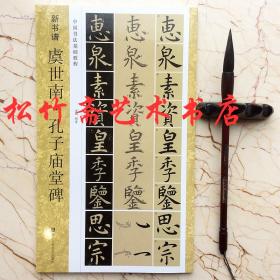 中国书法基础教程
新书谱
虞世南孔子庙堂碑
惠泉
素資
皇季
鑒思
宗
惠泉
素資
皇季
鑒思
宗
惠泉
素資
皇季
鑒
松竹斋艺术书店